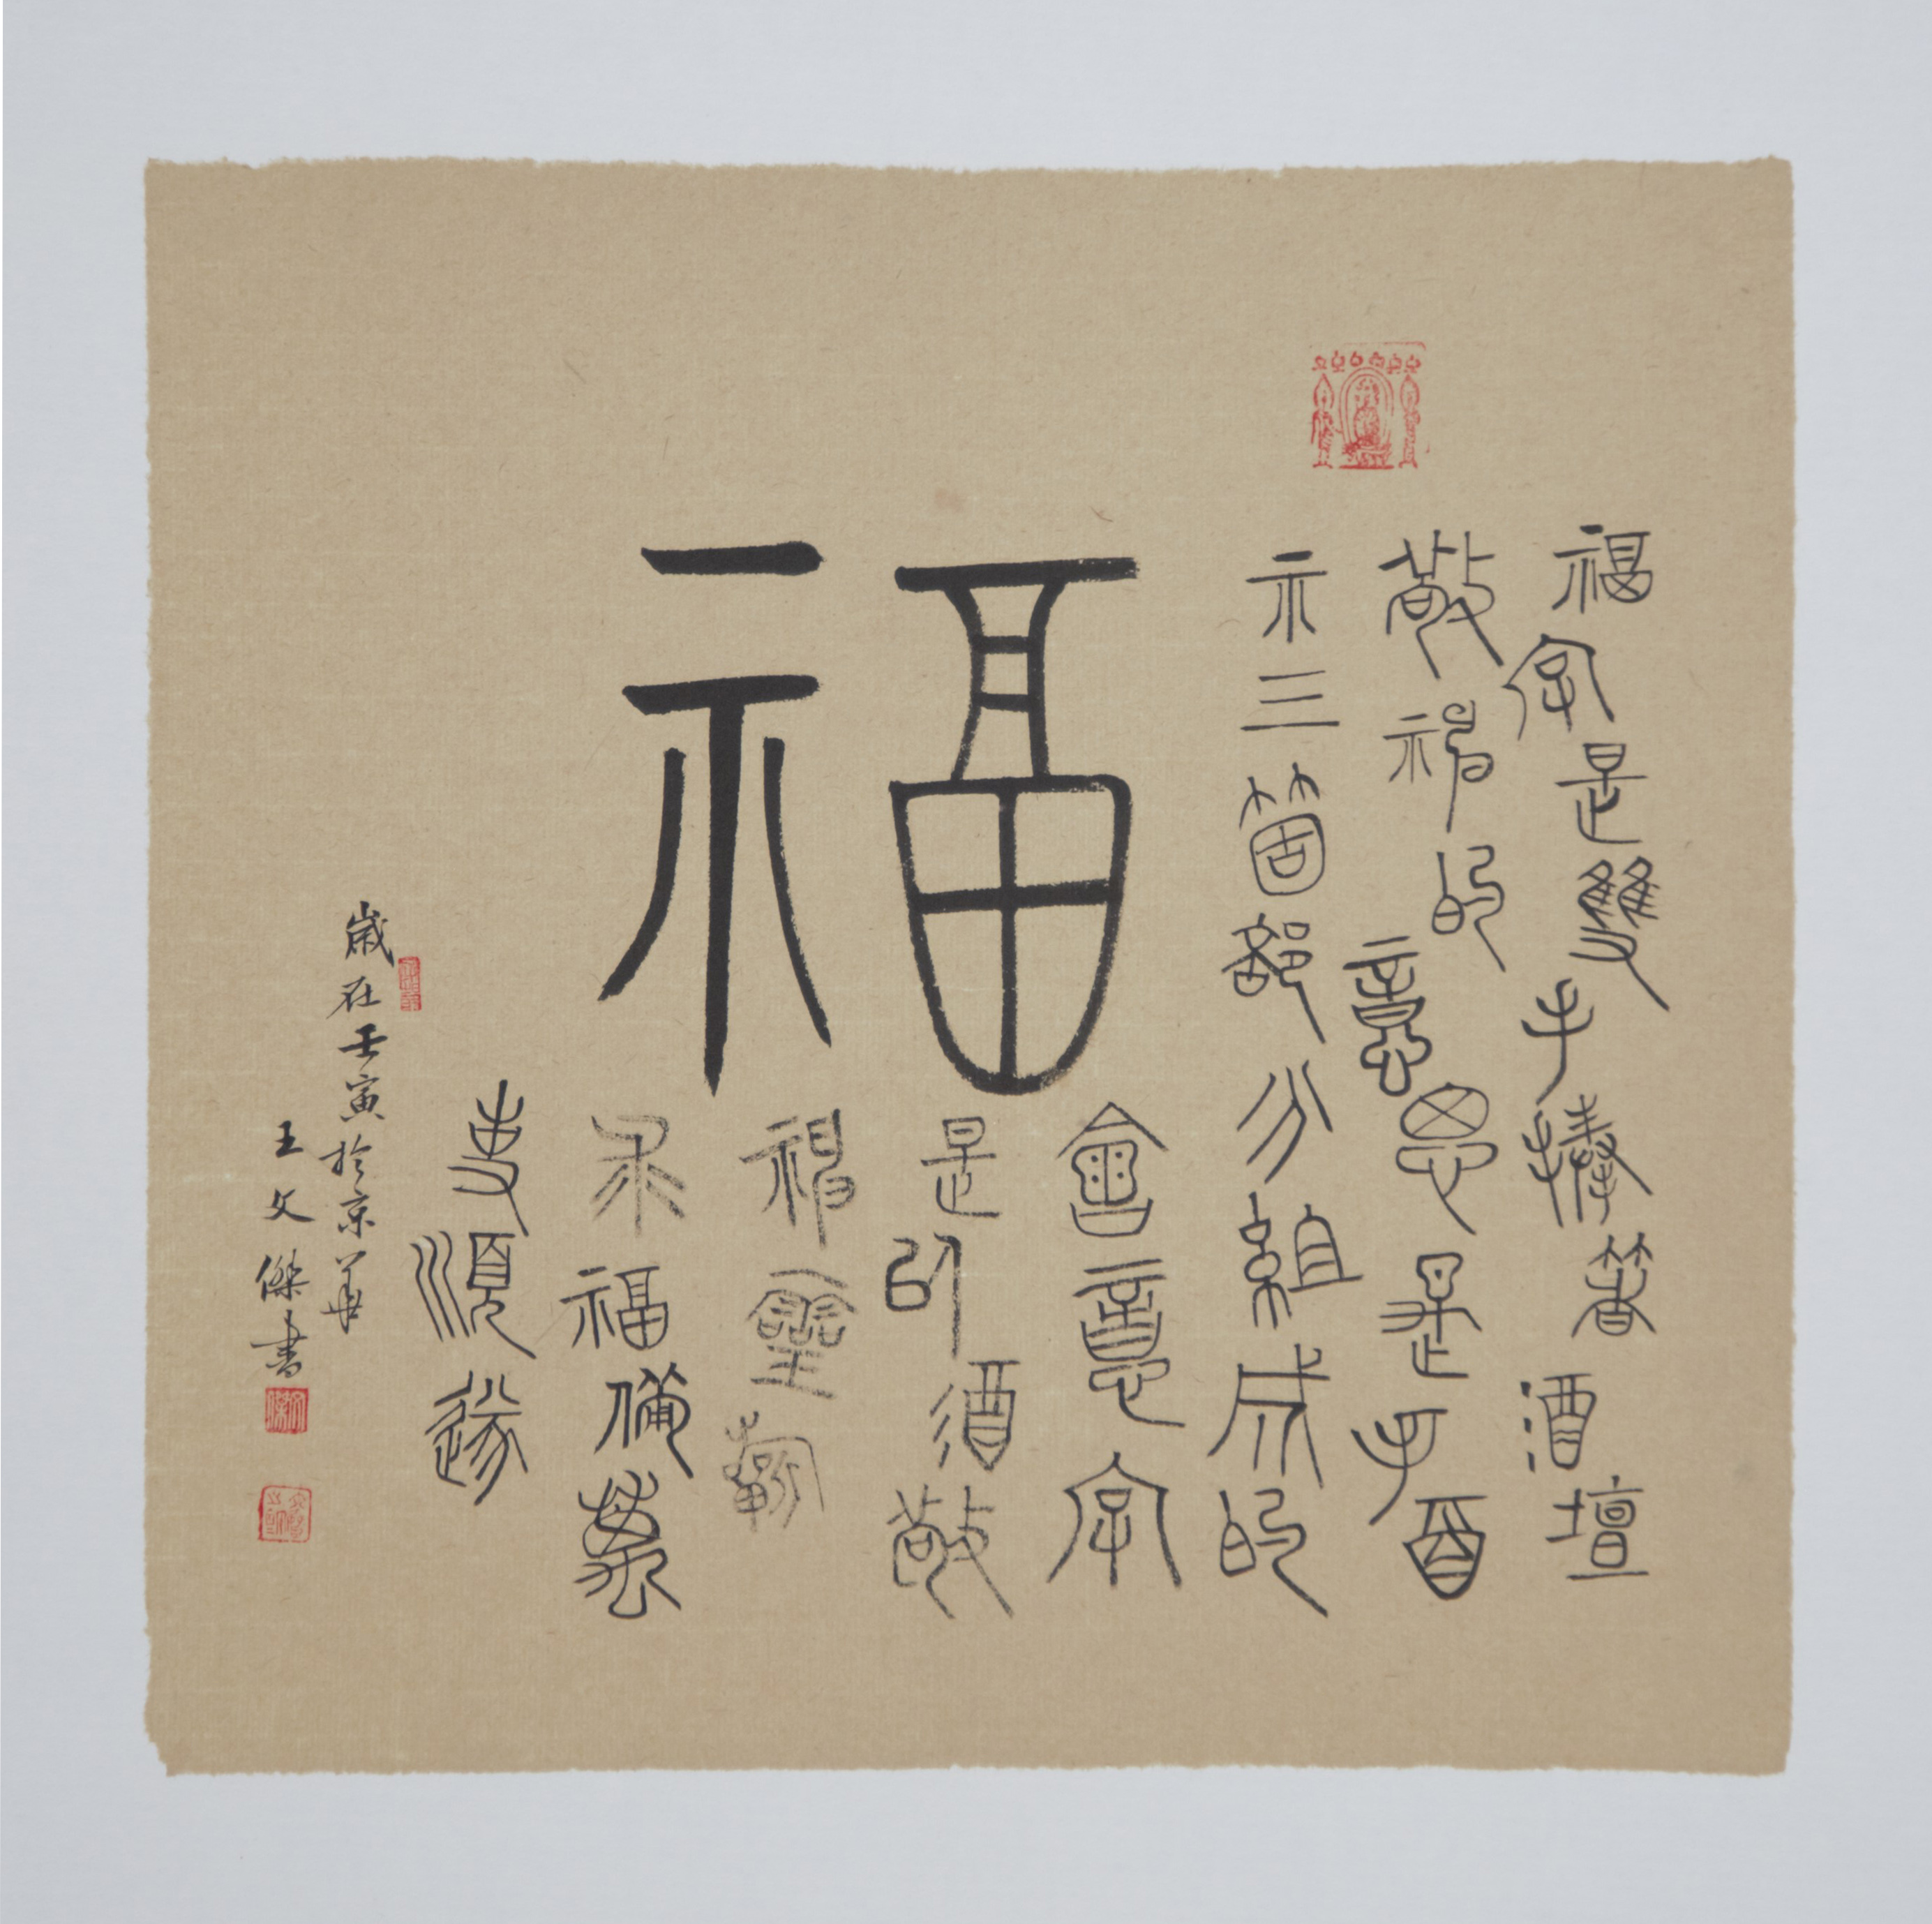 福字是雙手捧箸酒壇
敬神的意思是手酉
示三箇部分組成的
福
會意字
是以酒敬
神靈蘄
求福備萬
事順遂
歲在壬寅於京華
王文傑書